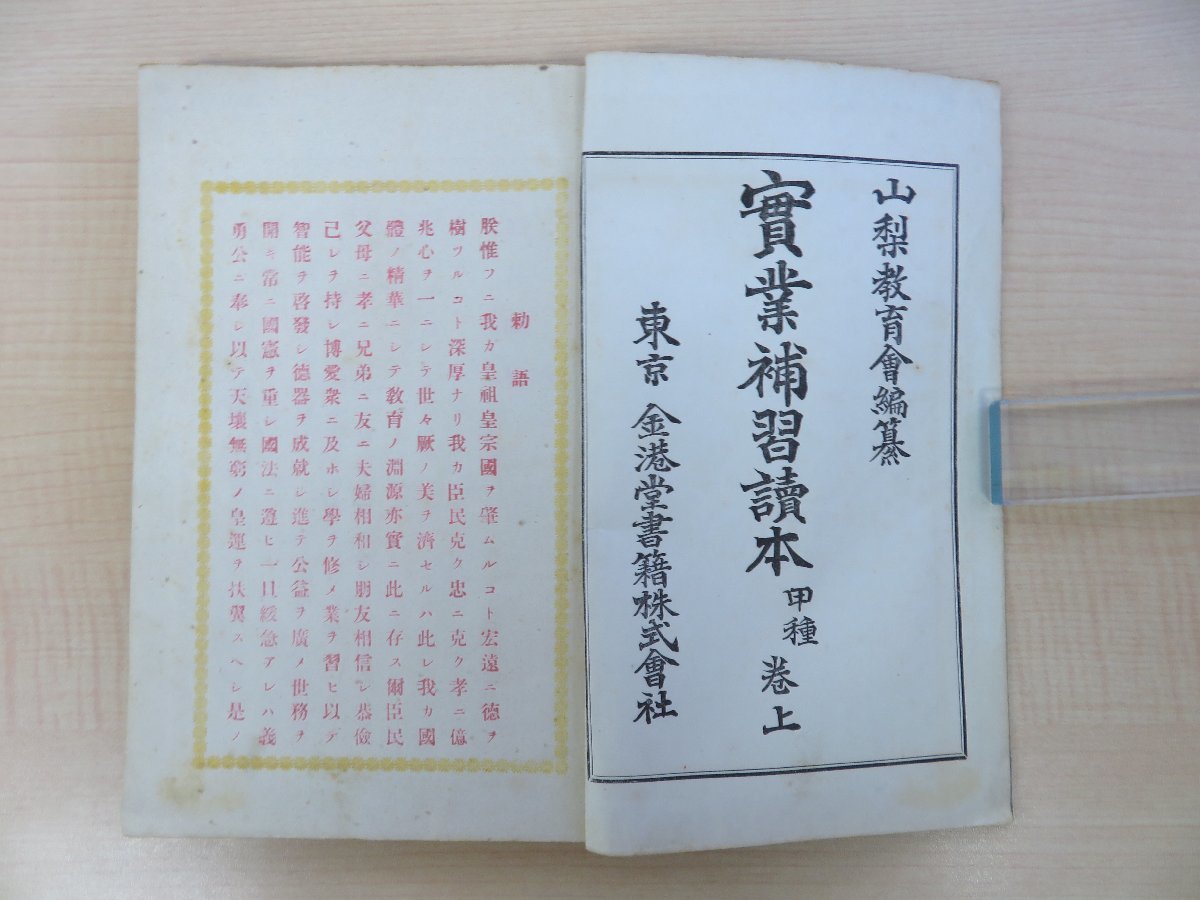 山梨教育會編纂
實業補習讀本 甲種 卷上
東京 金港堂書籍株式會社
勅語
朕惟フニ我カ皇祖皇宗國ヲ肇ムルコト宏遠ニ德ヲ
樹ツルコト深厚ナリ我カ臣民克ク忠ニ克ク孝ニ億
兆心ヲ一ニシテ世々厥ノ美ヲ濟セルハ此レ我カ國
體ノ精華ニシテ教育ノ淵源亦實ニ此ニ存ス爾臣民
父母ニ孝ニ兄弟ニ友ニ夫婦相和シ朋友相信シ恭儉
己レヲ持シ博愛衆ニ及ホシ學ヲ修メ業ヲ習ヒ以テ
智能ヲ啓發シ德器ヲ成就シ進テ公益ヲ廣メ世務ヲ
開キ常ニ國憲ヲ重シ國法ニ遵ヒ一旦緩急アレハ義
勇公ニ奉シ以テ天壤無窮ノ皇運ヲ扶翼スヘシ是ノ